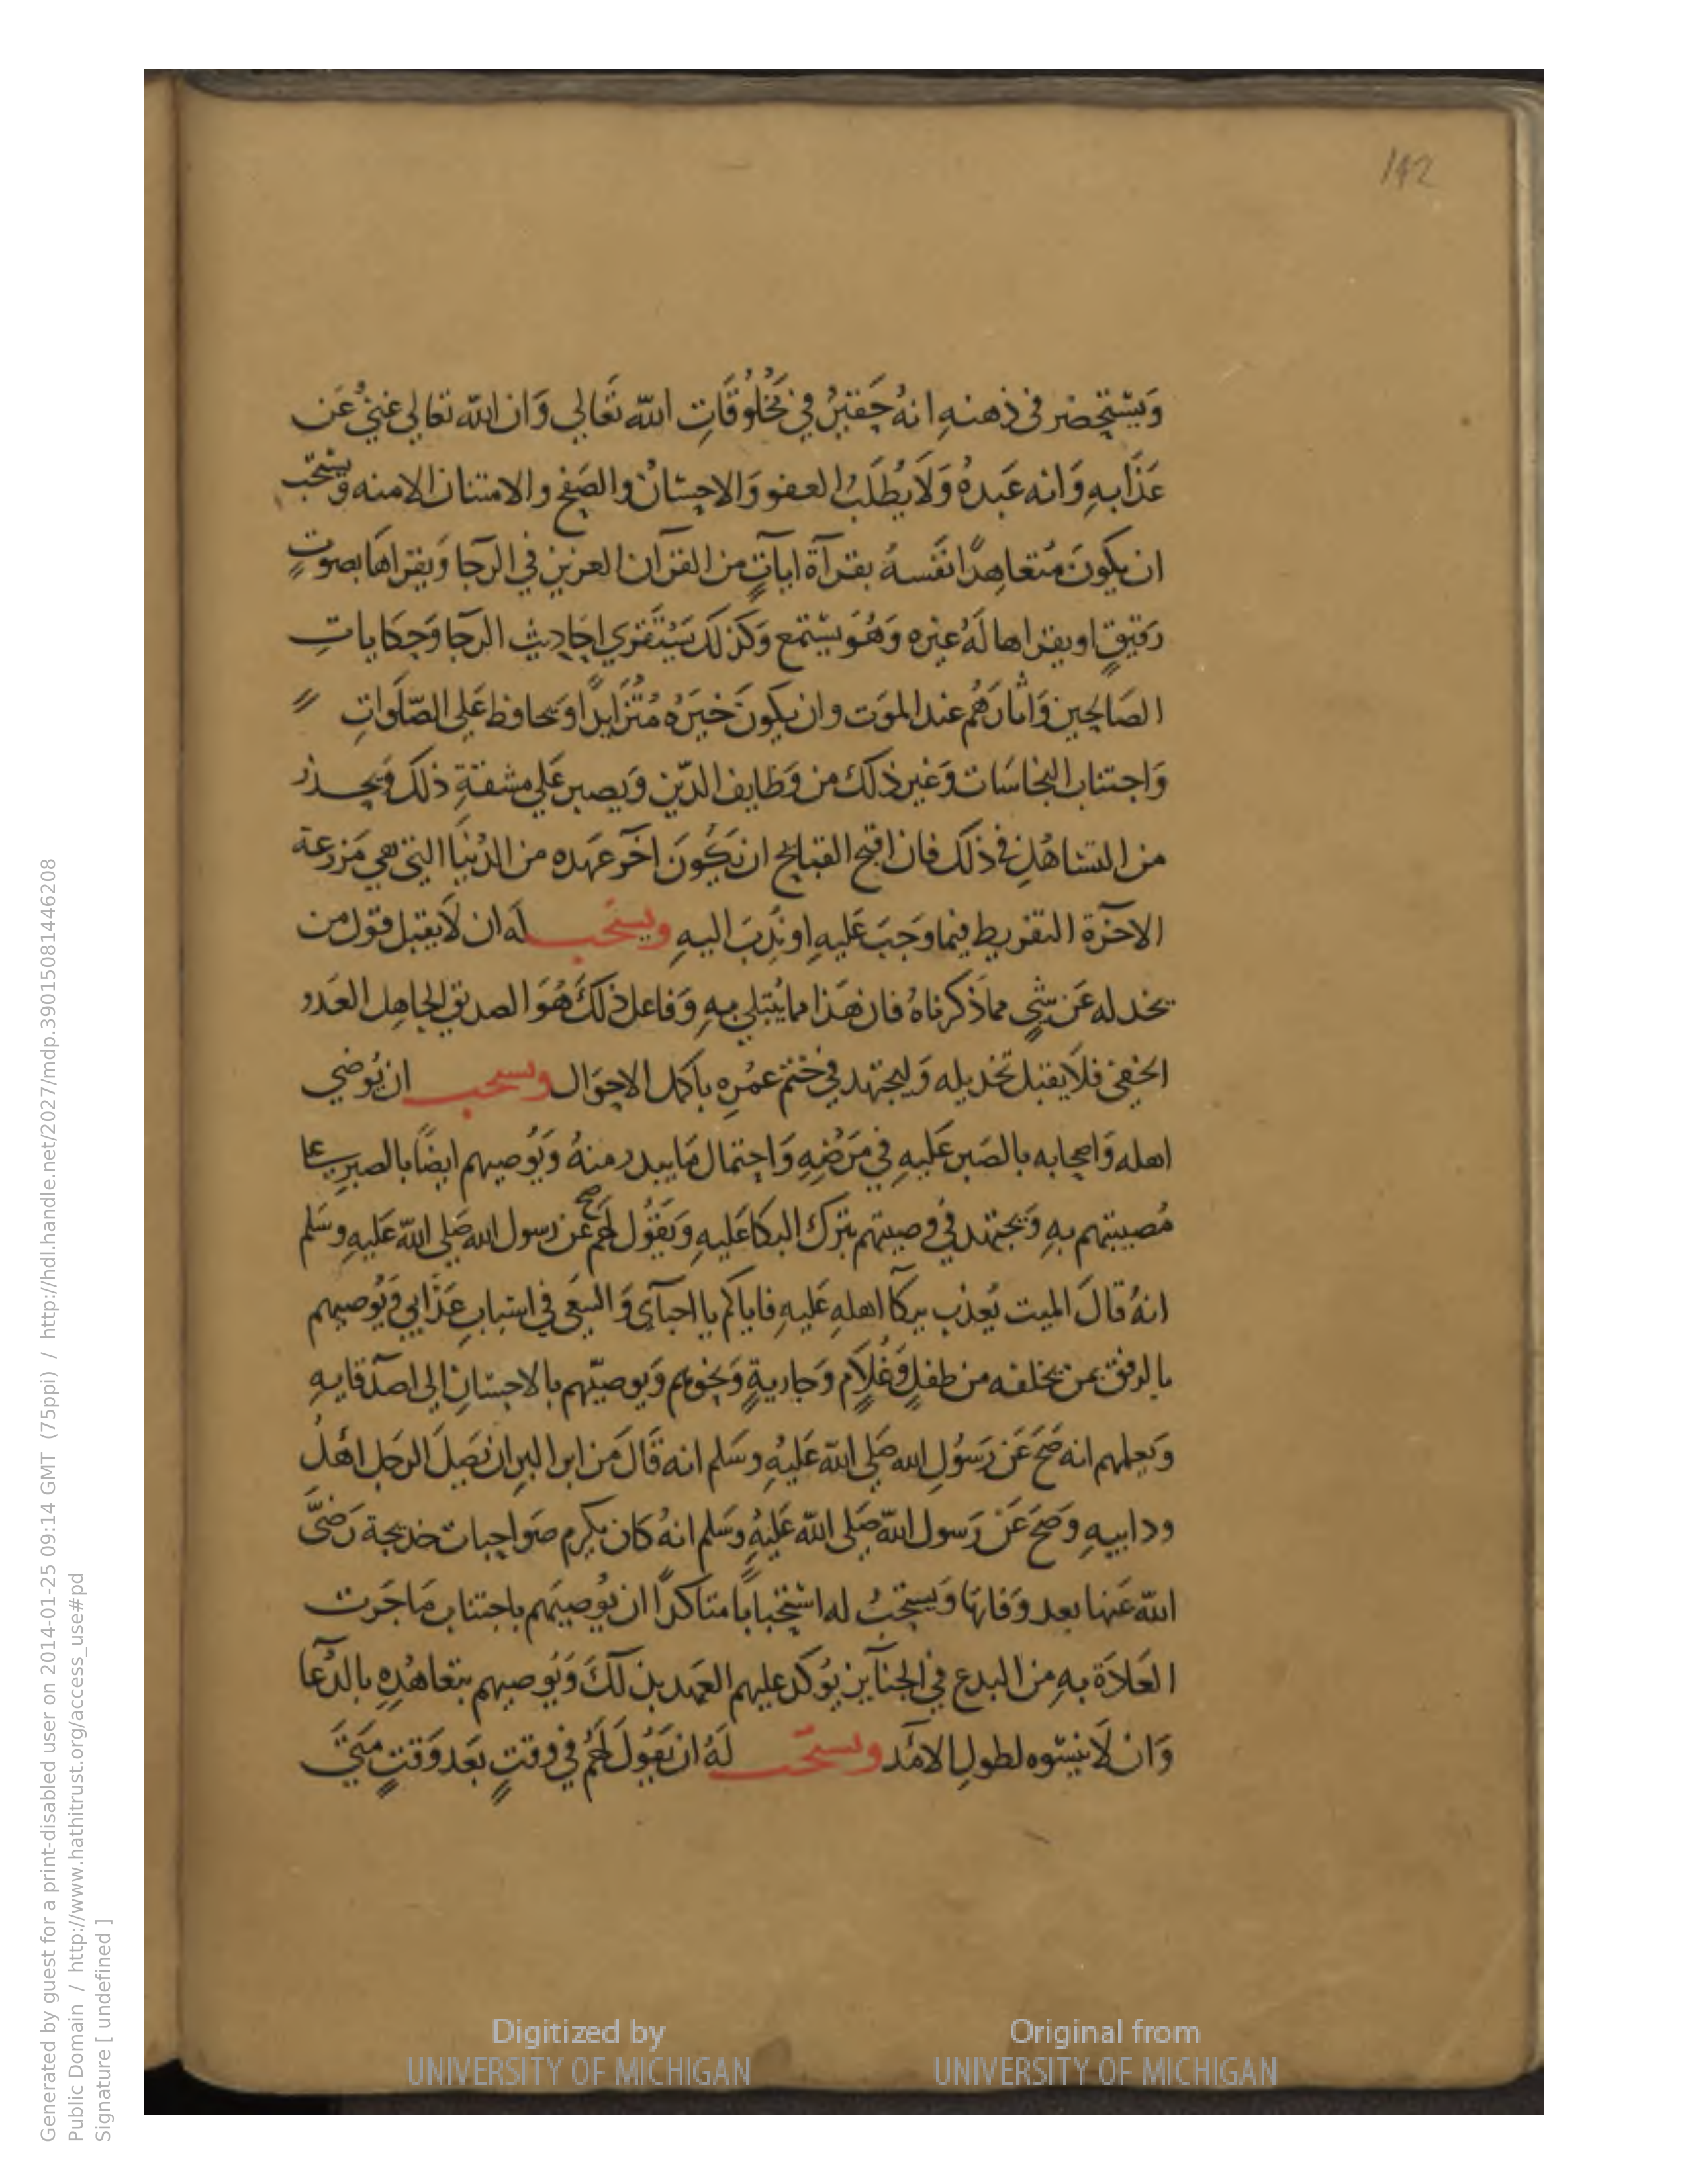 142
وَيَسْتَحضر فى ذهنهِ انهُ حَقيرٌ في مَخْلُوُقَاتِ الله تَعَالي وَان الله تعالي غنيٌ عَن
عَذَابهِ وَانه عَبدهُ وَلَا يُطلَبُ العفو وَالاحسَانُ والصَفح والامتنان الا منه وَيستحَب
ان يكونَ مُتعَاهِدًا نَفسهُ بقرآة اياتٍ من القرآن العزيز في الرجا وَيقراهَا بصوتٍ
رَقيقٍ او يقراها لَهُ غيره وَهُوَ يستمع وَكذلك يَسْتَقري احَاديث الرجا وَحكاياتِ
الصَالحين وَاثارَهُم عند الموَت وان يكونَ خيَرهُ مُتَزَايدًا وَيحافظ عَلي الصّلَوات
وَاجتناب النجاسَات وَغير ذلك من وَظايف الدّين وَيصبر عَلي مشقةِ ذلك وَيحذر
من التساهُل في ذلك فان اقبح القبايح ان يَكُونَ اخر عهده من الدُنيَا التي هي مَزرعة
الاخرَة التفريط فيما وَجبَ عَليهِ او نُدِبَ اليهِ ويستحَب لَه ان لَا يقبل قول من
يخدله عَن شيٍ مما ذكرناهُ فان هَذا مما يُبتلي بهِ وَفاعل ذلكَ هُوَ الصديق الجاهِل العَدو
الخفي فلَا يقبل تخذيله وَليجتهد في ختم عمُرهِ باكمل الاحوَال ويستحب ان يُوصي
اهله وَاصحابه بالصَبر عَليهِ في مَرَضهِ وَاحتمال مَا يبدر منهُ وَيُوصيهم ايضًا بالصبرِ علي
مُصيبتهم بهِ وَيجتهد في وصيتهم بترك البكا عَليهِ وَيَقُول لهُم صح عَن رسول الله صَلي الله عَليهِ وسَلم
انهُ قالَ الميت يُعذب ببكآ اهلهِ عَليهِ فاياكم يا احبآي وَالسَعي في اسبابِ عَذَابي وَيُوصيهم
بالرفق بمن يخلفه من طفلٍ وَغُلَامٍ وَجاريةٍ وَنحوهم وَيوصيّهم بالاحسَان الي اصدقايهِ
وَيعلمهم انه صَحَ عَن رَسوُل الله صَلي الله عَليهِ وسَلم انه قَالَ من ابر البر ان يَصِلَ الرجَل اهْلَ
ود ابيهِ وَصَحَ عَن رَسول الله صَلي الله عَليهِ وسَلم انهُ كان يكرم صَواحبات خديجة رَضيَ
الله عَنها بعد وَفاتهَا وَيستحَبُ له استحبابًا متاكدًا ان يُوصيَهم باجتناب مَا جَرت
العَادَة بهِ من البدع في الجنآيز يُوكد عليهم العَهد بذلكَ وَيُوصيهم بتعَاهُدِهِ بالدُعآ
وَان لَا ينسَوه لطول الامَد ويستحَب لَهُ ان يَقوُلَ لهُم في وقتٍ بَعد وَقتٍ مَتيَ
Digitized by UNIVERSITY OF MICHIGAN
Original from UNIVERSITY OF MICHIGAN
Generated by guest for a print-disabled user on 2014-01-25 09:14 GMT (75ppi) / http://hdl.handle.net/2027/mdp.39015081446208
Public Domain / http://www.hathitrust.org/access_use#pd
Signature [ undefined ]